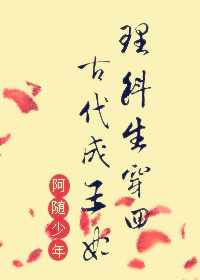 理科生穿回
古代成王妃
阿随少年